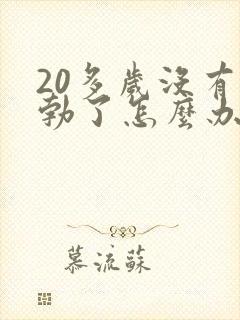 20多歲沒有
勃了怎麼办
慕流蘇